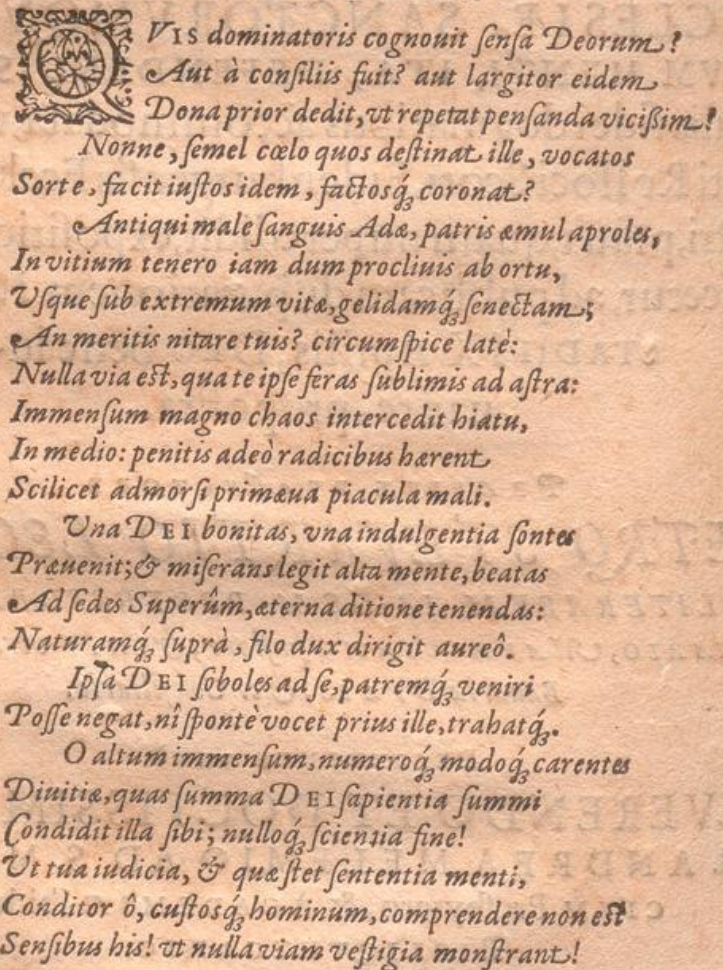 QVIS dominatoris cognouit ſenſa Deorum?
Aut à conſiliis fuit? aut largitor eidem
Dona prior dedit, vt repetat penſanda vicißim?
Nonne, ſemel cœlo quos deſtinat ille, vocatos
Sorte, facit iuſtos idem, factosq́ꝫ coronat?
Antiqui male ſanguis Adæ, patris æmula proles,
In vitium tenero iam dum procliuis ab ortu,
Vſque ſub extremum vitæ, gelidamq́ꝫ ſenectam;
An meritis nitare tuis? circumſpice latè:
Nulla via eſt, qua te ipſe feras ſublimis ad aſtra:
Immenſum magno chaos intercedit hiatu,
In medio: penitis adeò radicibus hærent
Scilicet admorſi primæua piacula mali.
Vna DEI bonitas, vna indulgentia ſontes
Præuenit; & miſerans legit alta mente, beatas
Ad ſedes Superûm, æterna ditione tenendas:
Naturamq́ꝫ ſuprà, filo dux dirigit aureô.
Ipſa DEI ſoboles ad ſe, patremq́ꝫ veniri
Poſſe negat, nî ſpontè vocet prius ille, trahatq́ꝫ.
O altum immenſum, numeroq́ꝫ modoq́ꝫ carentes
Diuitiæ, quas ſumma DEI ſapientia ſummi
Condidit illa ſibi; nulloq́ꝫ ſcientia fine!
Vt tua iudicia, & quæ ſtet ſententia menti,
Conditor ô, cuſtosq́ꝫ hominum, comprendere non eſt
Senſibus his! vt nulla viam veſtigia monſtrant!